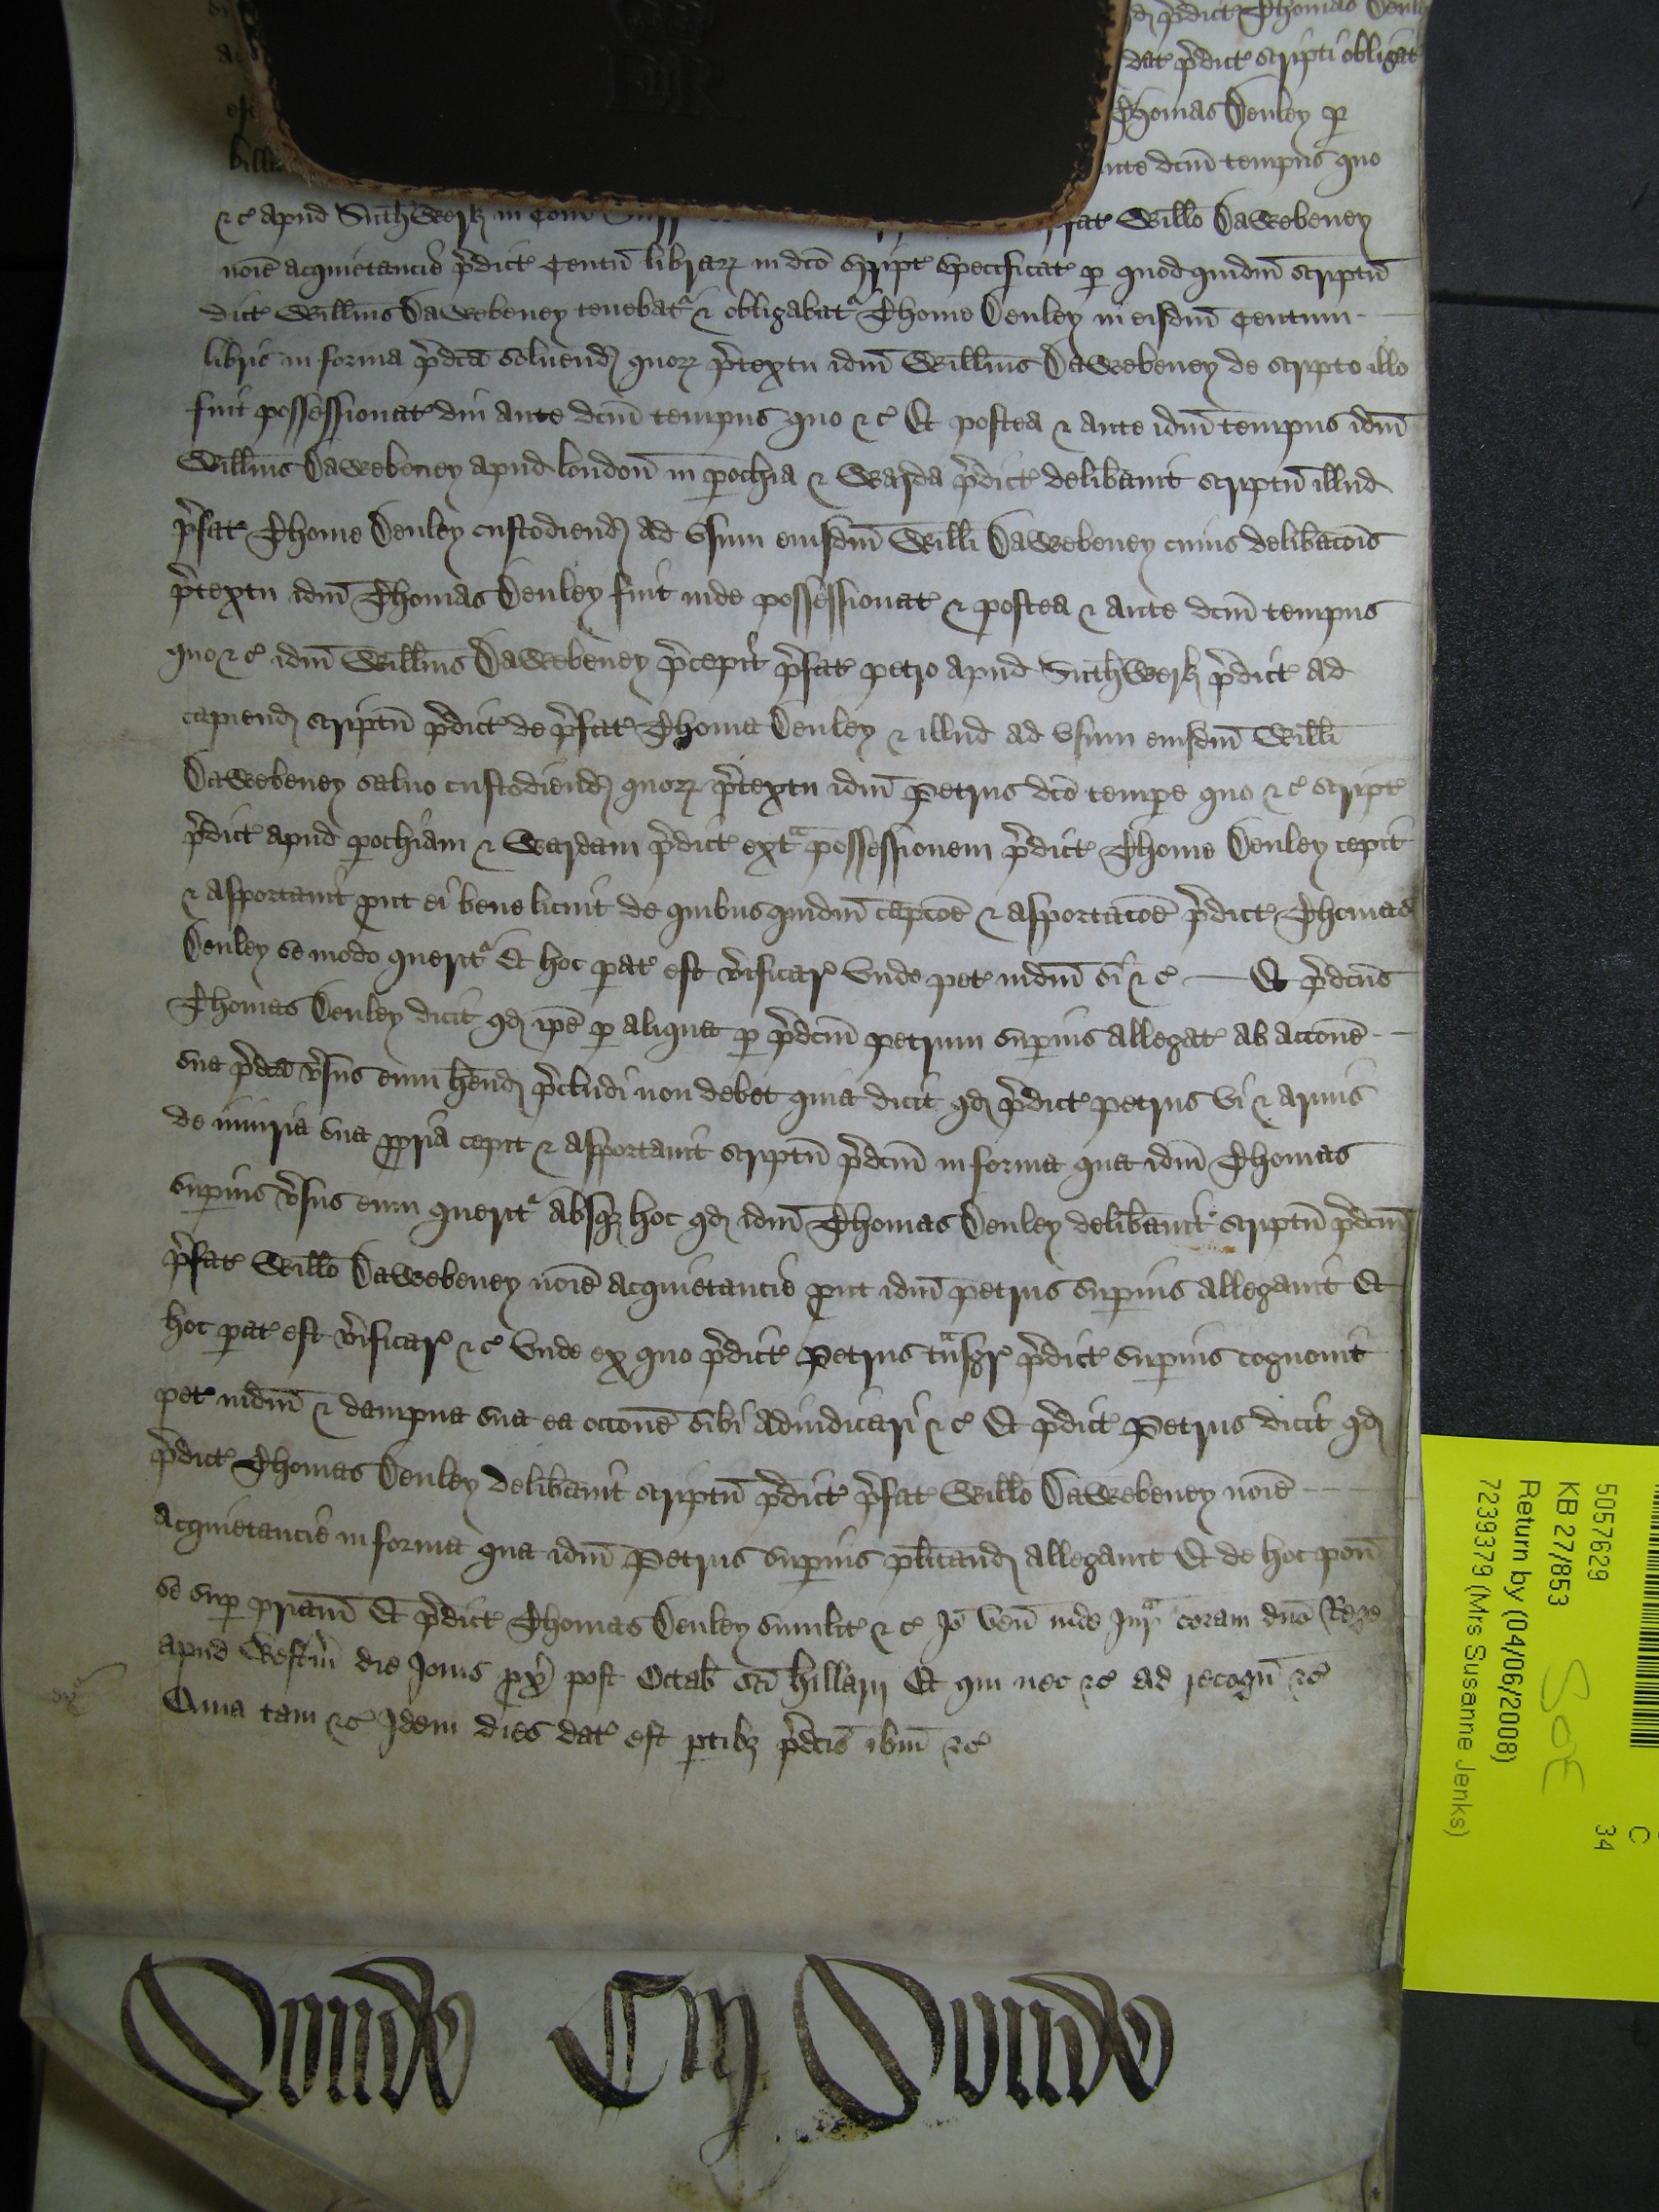 qd p̄dict Thomas Denley
dat p̄dict scripti obligat
Thomas Denley p
bill ante dcm̄ tempus quo
&c apud Suthwerk in Com̄ fat Willo Dawbeney
noīe acquietancie p̄dict Centū librar̄ in dcō script specificat p quod quidm̄ scriptū
dict Willm̄s Dawbeney tenebat & obligabat Thome Denley in eisdm̄ Centum
libris in forma p̄dcā soluend quor̄ p̄textu idm̄ Willm̄s Dawbeney de scripto illo
fuit possessionat diu ante dcm̄ tempus quo &c Et postea & ante idm̄ tempus idm̄
Willm̄s Dawbeney apud london̄ in pochia & Warda p̄dict delibauit scriptū illud
p̄fat Thome Denley custodiend ad vsum eiusdm̄ Willi Dawbeney cuius delibacōis
p̄textu idm̄ Thomas Denley fuit inde possessionat & postea & ante dcm̄ tempus
quo &c idm̄ Willm̄s Dawbeney p̄cepit p̄fat Petro apud Suthwerk p̄dict ad
capiend scriptū p̄dict de p̄fat Thoma Denley & illud ad vsum eiusdm̄ Willi
Dawbeney saluo custodiend quor̄ p̄textu idm̄ Petrus dcō tempe quo &c script
p̄dict apud pochiam & Wardam p̄dict ext̄ possessionem p̄dict Thome Denley cepit
& asportauit put ei bene licuit de quibus quidm̄ capcōe & asportacōe p̄dict Thomas
Denley se modo querit Et hoc pat est v̄ificar̄ vnde pet iudm̄ si &c — Et p̄dcūs
Thomas Denley dicit qd ip̄e p aliqua p p̄dcm̄ Petrum supius allegat ab accōne
sua p̄dcā v̄sus eum hēnd p̄cludi non debet quia dicit qd p̄dict Petrus vi & armis
de iniuria sua ppria cepit & asportauit scriptū p̄dcm̄ in forma qua idm̄ Thomas
supius v̄sus eum querit absq̢ hoc qd idm̄ Thomas Denley delibauit scriptū p̄dcm̄
p̄fat Willo Dawbeney noīe acquietancie put idm̄ Petrus supius allegauit Et
hoc pat est v̄ificar̄ &c vnde ex quo p̄dict Petrus tnsgr̄ p̄dict supius cognouit
pet iudm̄ & dampna sua ea occōne sibi adiudicari &c Et p̄dict Petrus dicit qd
p̄dict Thomas Denley delibauit scriptū p̄dict p̄fat Willo Dawbeney noīe
acquietancie in forma qua idm̄ Petrus supius plitand allegauit Et de hoc pon̄
se sup pr̄iam Et p̄dict Thomas Denley similit &c Iō ven̄ inde Iur̄ coram dnō Rege
apud Westm̄ die Iouis px̄ post Octab scī hillarij Et qui nec &c ad recogn̄ &c
Quia tam &c Idem dies dat est ptib̢ p̄dcīs ibm̄ &c
Londō Cij Londō
5057629
KB 27/853
Return by (04/06/2008)
7239379 (Mrs Susanne Jenks)
SoE
C
34